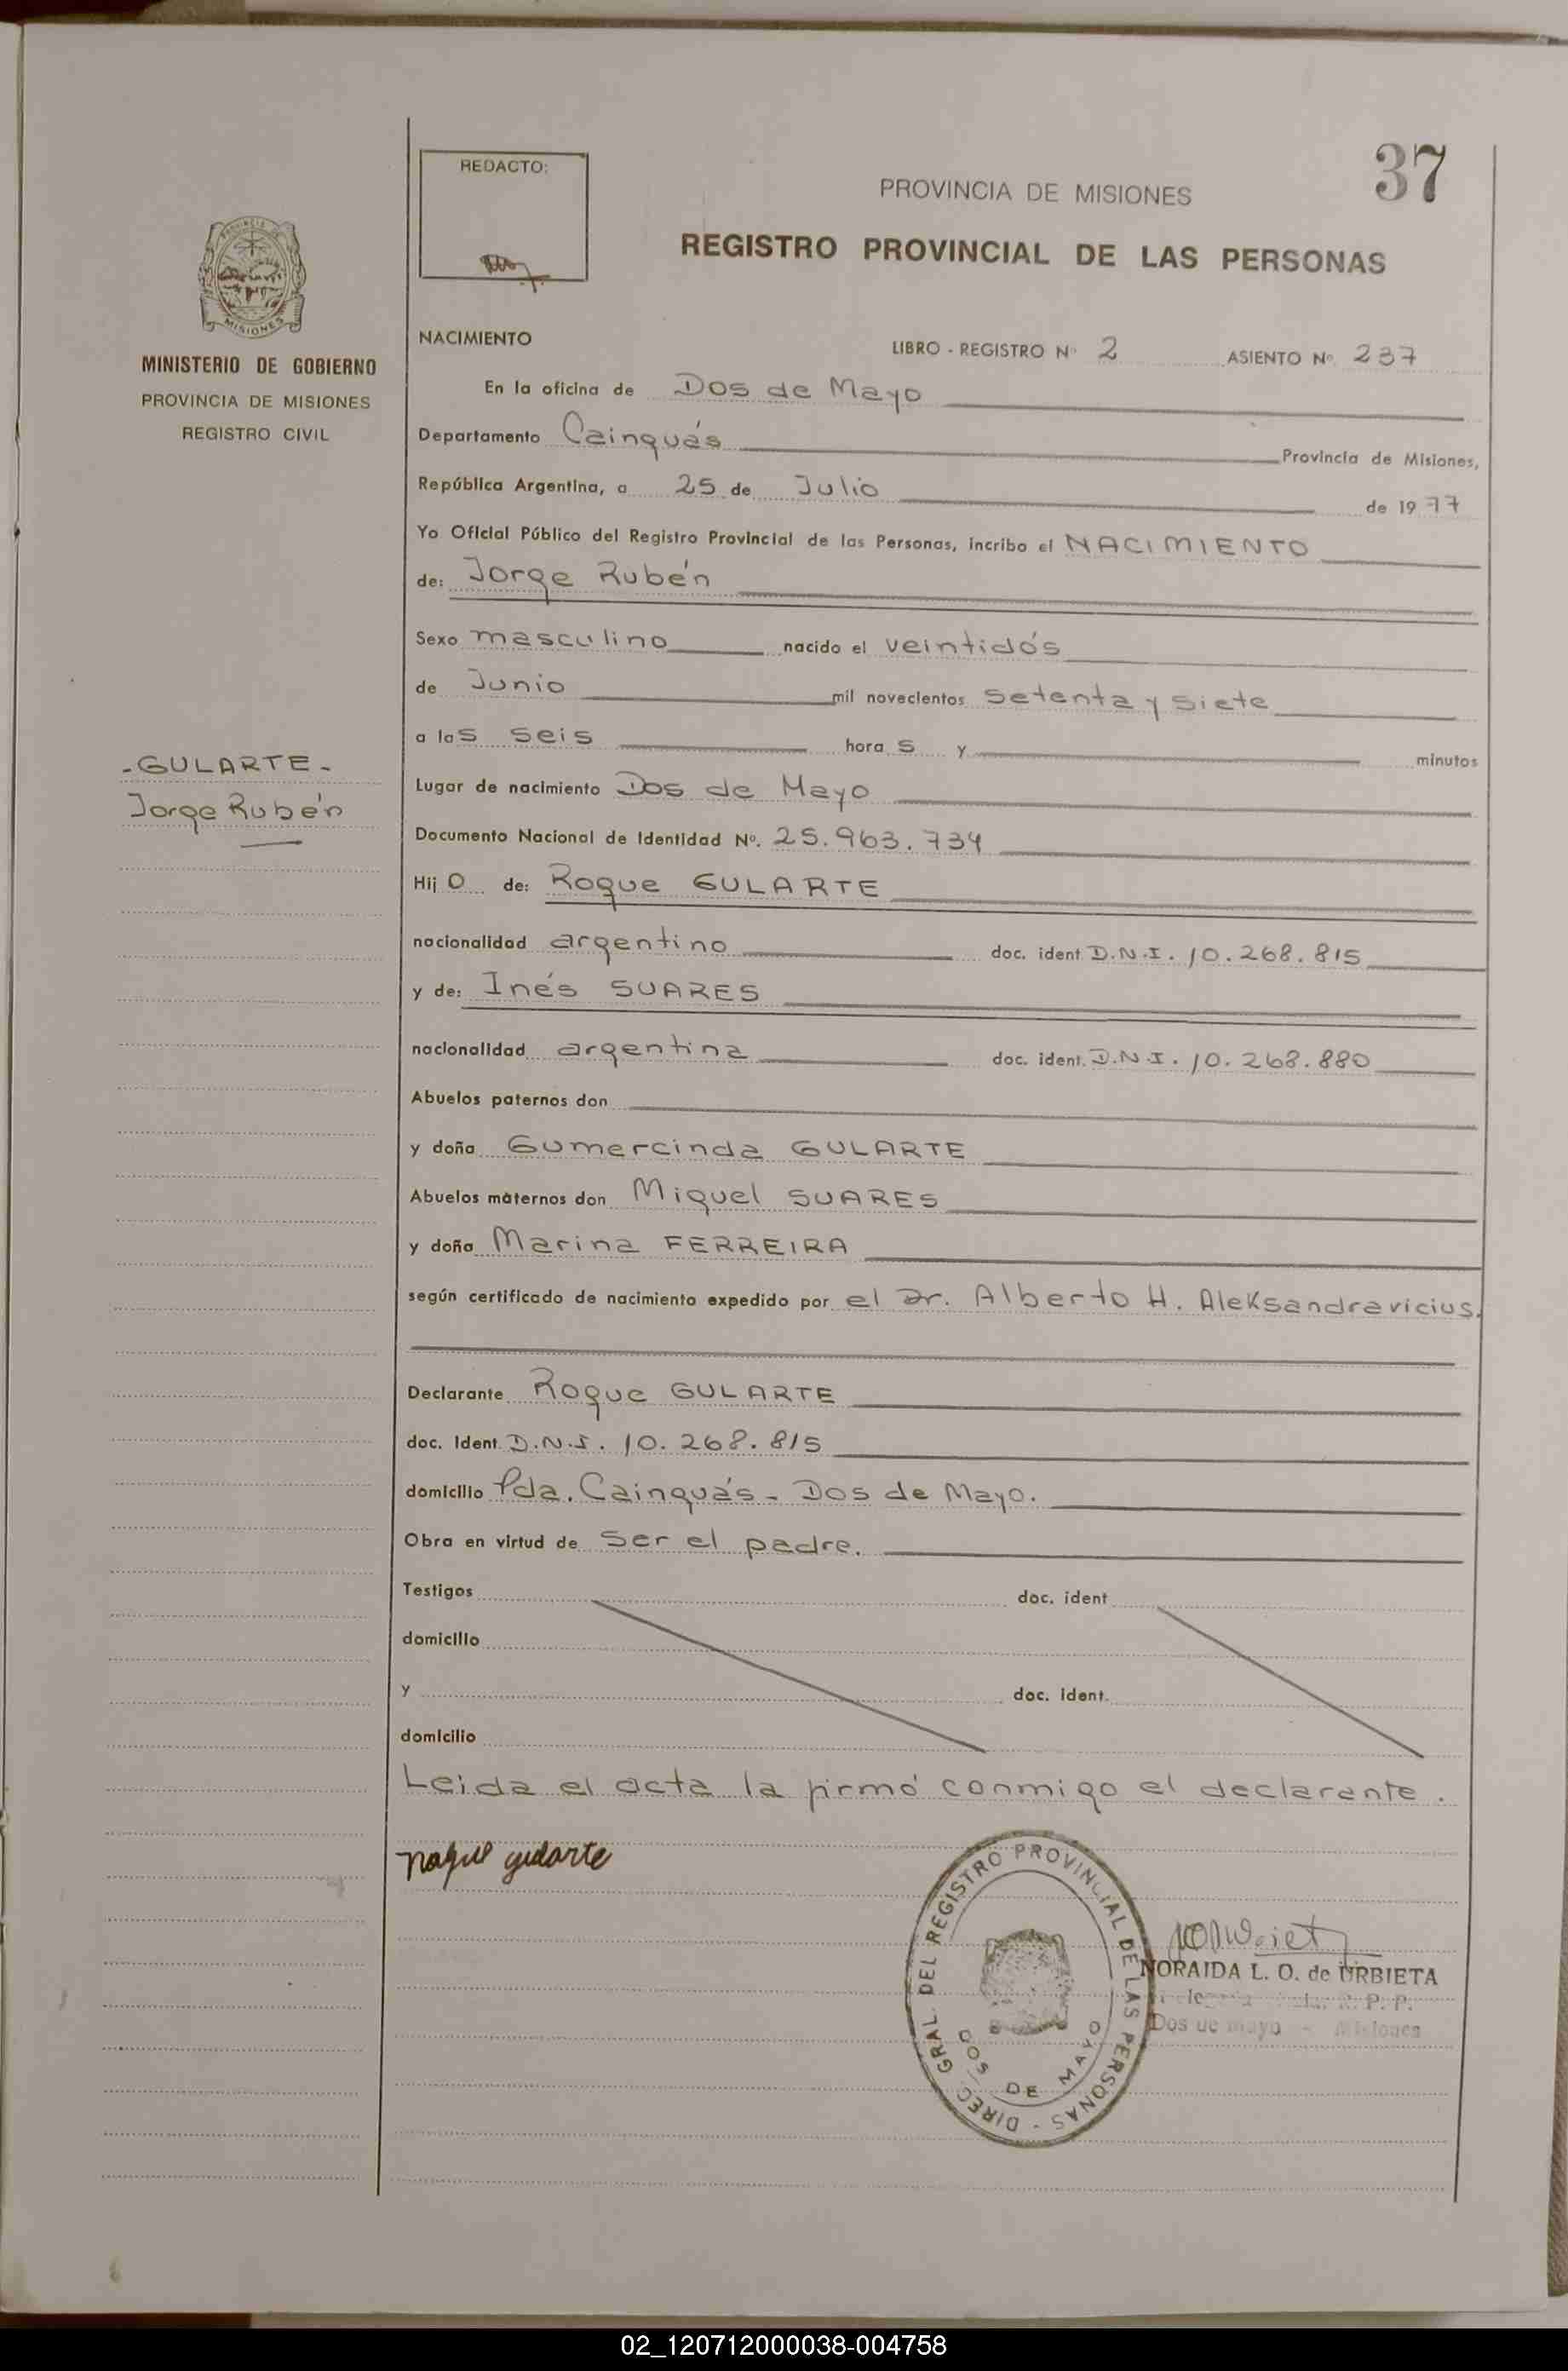 37
REDACTO:
PROVINCIA DE MISIONES
REGISTRO PROVINCIAL DE LAS PERSONAS
MISIONES
MINISTERIO DE GOBIERNO
PROVINCIA DE MISIONES
REGISTRO CIVIL
NACIMIENTO
LIBRO - REGISTRO Nº 2 ASIENTO Nº 237
En la oficina de Dos de Mayo
Departamento Cainguás Provincia de Misiones,
República Argentina, a 25 de Julio de 1977
Yo Oficial Público del Registro Provincial de las Personas, incribo el NACIMIENTO
de: Jorge Rubén
Sexo masculino nacido el veintidós
de Junio mil novecientos setenta y siete
a las seis horas y minutos
- GULARTE -
Jorge Rubén
Lugar de nacimiento Dos de Mayo
Documento Nacional de Identidad Nº. 25.963.734
Hijo de: Roque GULARTE
nacionalidad argentino doc. ident D.N.I. 10.268.815
y de: Inés SUARES
nacionalidad argentina doc. ident. D.N.I. 10.268.880
Abuelos paternos don
y doña Gumercinda GULARTE
Abuelos maternos don Miguel SUARES
y doña Marina FERREIRA
según certificado de nacimiento expedido por el Dr. Alberto H. Aleksandravicius.
Declarante Roque GULARTE
doc. Ident. D.N.I. 10.268.815
domicilio Pda. Cainguás - Dos de Mayo.
Obra en virtud de ser el padre.
Testigos doc. ident
domicilio
y doc. ident.
domicilio
Leida el acta la firmó conmigo el declarante.
roque gularte
DIREC GRAL. DEL REGISTRO PROVINCIAL DE LAS PERSONAS -
DOS DE MAYO
NORAIDA L. O. de URBIETA
R. P. P.
Dos de Mayo - Misiones
02_120712000038-004758